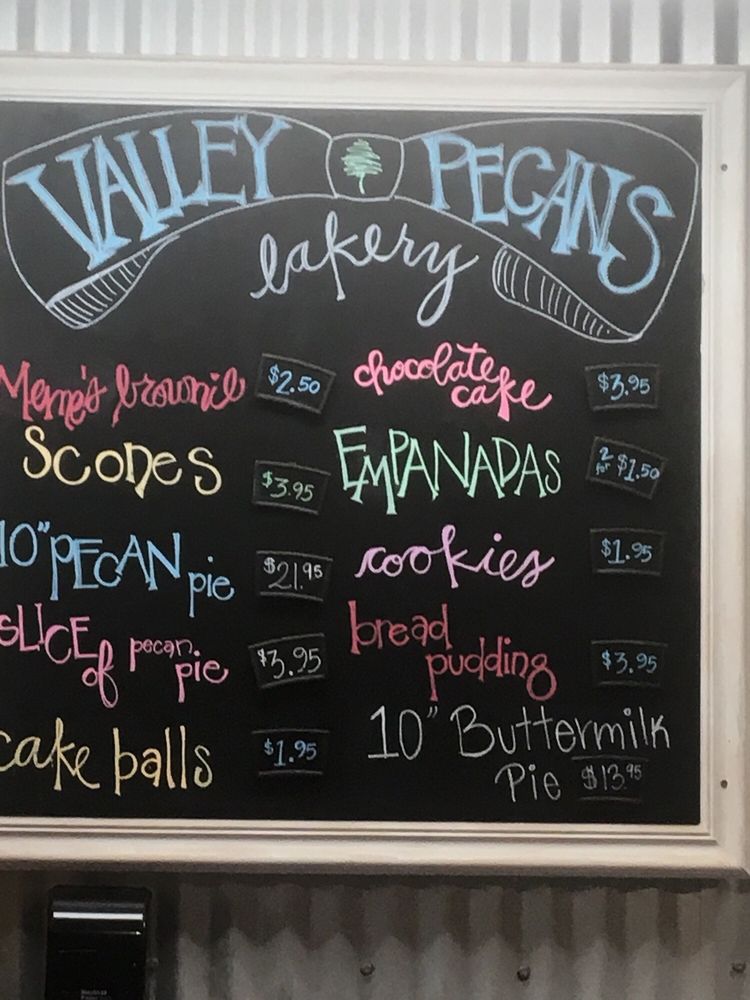 VALLEY PECANS
bakery
Meme's brownie $2.50
Scones $3.95
10" PECAN pie $21.95
SLICE of pecan pie $3.95
cake balls $1.95
chocolate cake $3.95
EMPANADAS 2 for $1.50
cookies $1.95
bread pudding $3.95
10" Buttermilk
Pie $13.95